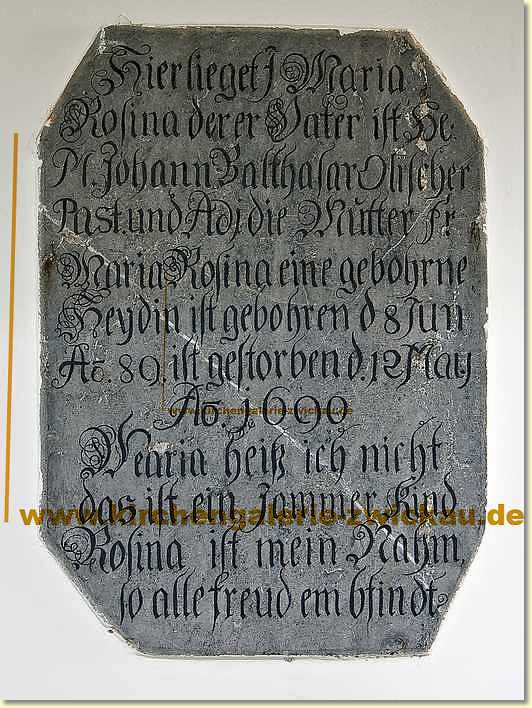 Hier lieget J Maria
Rosina derer Vater ist He:
M. Johann Balthasar Olischer
Past. und Adj die Mutter Fr
Maria Rosina eine gebohrne
Heydin ist gebohren d 8 Jun
Ao. 80. ist gestorben d. 12 May
Ao. 1690
www.kirchengalerie-zwickau.de
Maria heiß ich nicht
das ist ein Jammer Kind
www.kirchengalerie-zwickau.de
Rosina ist mein Nahm,
so alle freud embfindt